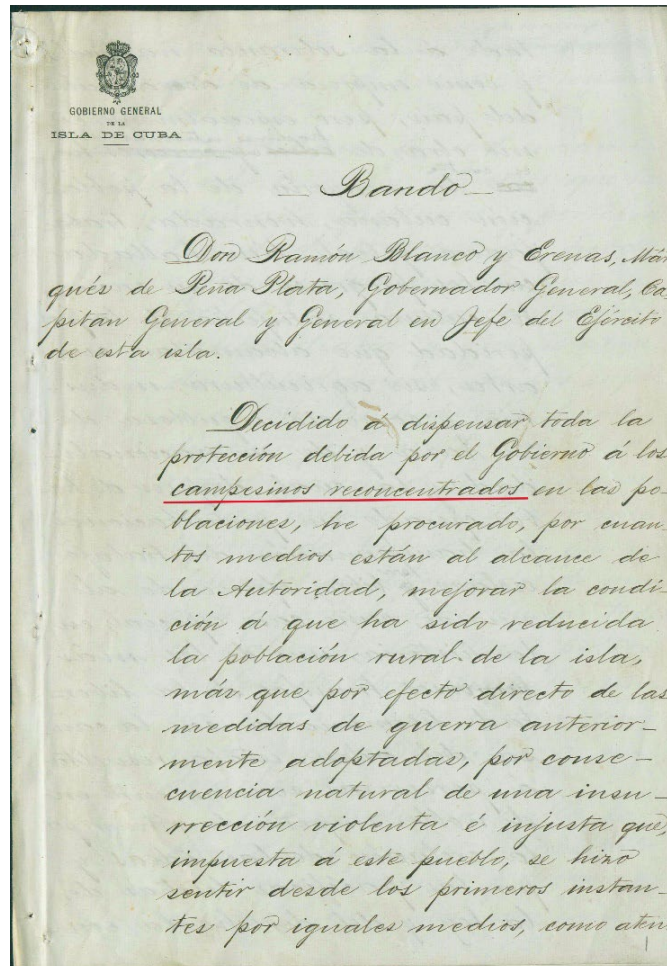 GOBIERNO GENERAL
DE LA
ISLA DE CUBA
Bando
Don Ramón Blanco y Erenas, Már
qués de Peña Plata, Gobernador General, Ca
pitan General y General en Jefe del Ejército
de esta isla.
Decidido á dispensar toda la
protección debida por el Gobierno á los
campesinos reconcentrados en las po-
blaciones, he procurado, por cuan-
tos medios están al alcance de
la Autoridad, mejorar la condi-
ción á que ha sido reducida
la población rural de la isla,
más que por efecto directo de las
medidas de guerra anterior-
mente adoptadas, por conse-
cuencia natural de una insu-
rrección violenta é injusta que,
impuesta á este pueblo, se hizo
sentir desde los primeros instan-
tes por iguales medios, como aten
1